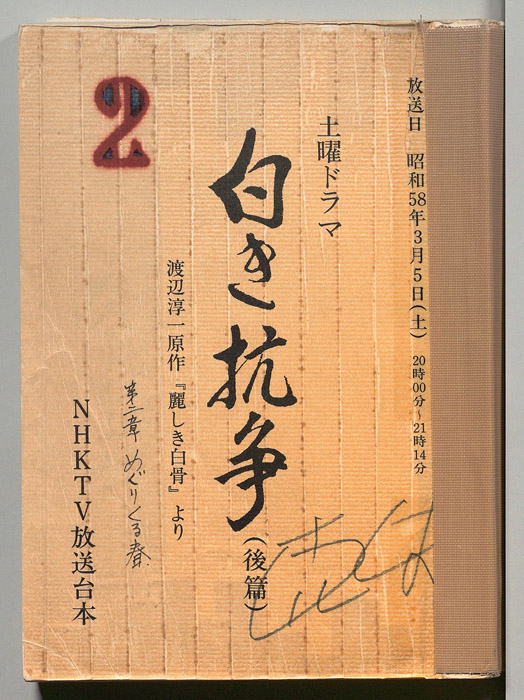 放送日 昭和58年3月5日(土) 20時00分~21時14分
土曜ドラマ
白き抗争(後篇)
渡辺淳一原作『麗しき白骨』より
第二章 めぐりくる春
NHKTV放送台本
2